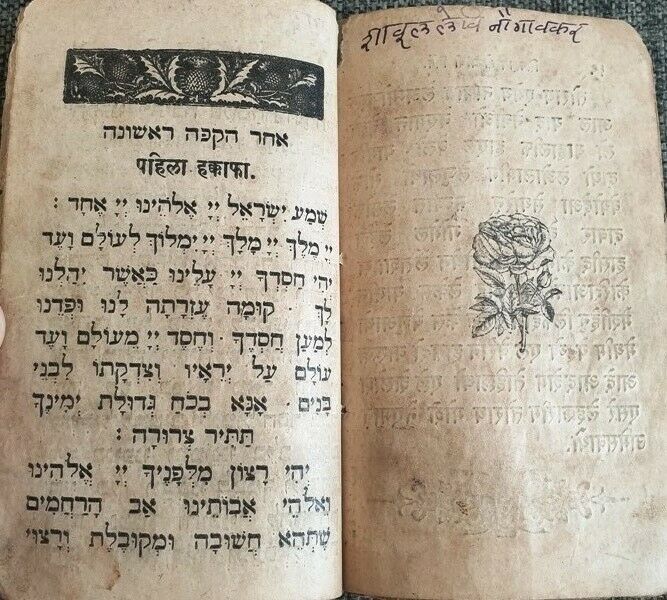 אחר הקפה ראשונה
पहिला हक्काफा.
שְׁמַע יִשְׂרָאֵל יְיָ אֱלֹהֵינוּ יְיָ אֶחָד :
יְיָ מֶלֶךְ יְיָ מָלָךְ יְיָ יִמְלוֹךְ לְעוֹלָם וָעֶד
יְהִי חַסְדְּךָ יְיָ עָלֵינוּ כַּאֲשֶׁר יִחַלְנוּ
לָךְ · קוּמָה עֶזְרָתָה לָנוּ וּפְדֵנוּ
לְמַעַן חַסְדֶּךָ · וְחֶסֶד יְיָ מֵעוֹלָם וְעַד
עוֹלָם עַל יְרֵאָיו וְצִדְקָתוֹ לִבְנֵי
בָנִים · אָנָּא בְּכֹחַ גְּדוּלַּת יְמִינְךָ
תַּתִּיר צְרוּרָה :
יְהִי רָצוֹן מִלְּפָנֶיךָ יְיָ אֱלֹהֵינוּ
וֵאלֹהֵי אֲבוֹתֵינוּ אַב הָרַחֲמִים
שֶׁתְּהֵא חֲשׁוּבָה וּמְקוּבֶּלֶת וְרָצוּי
शावूल नौगावकर